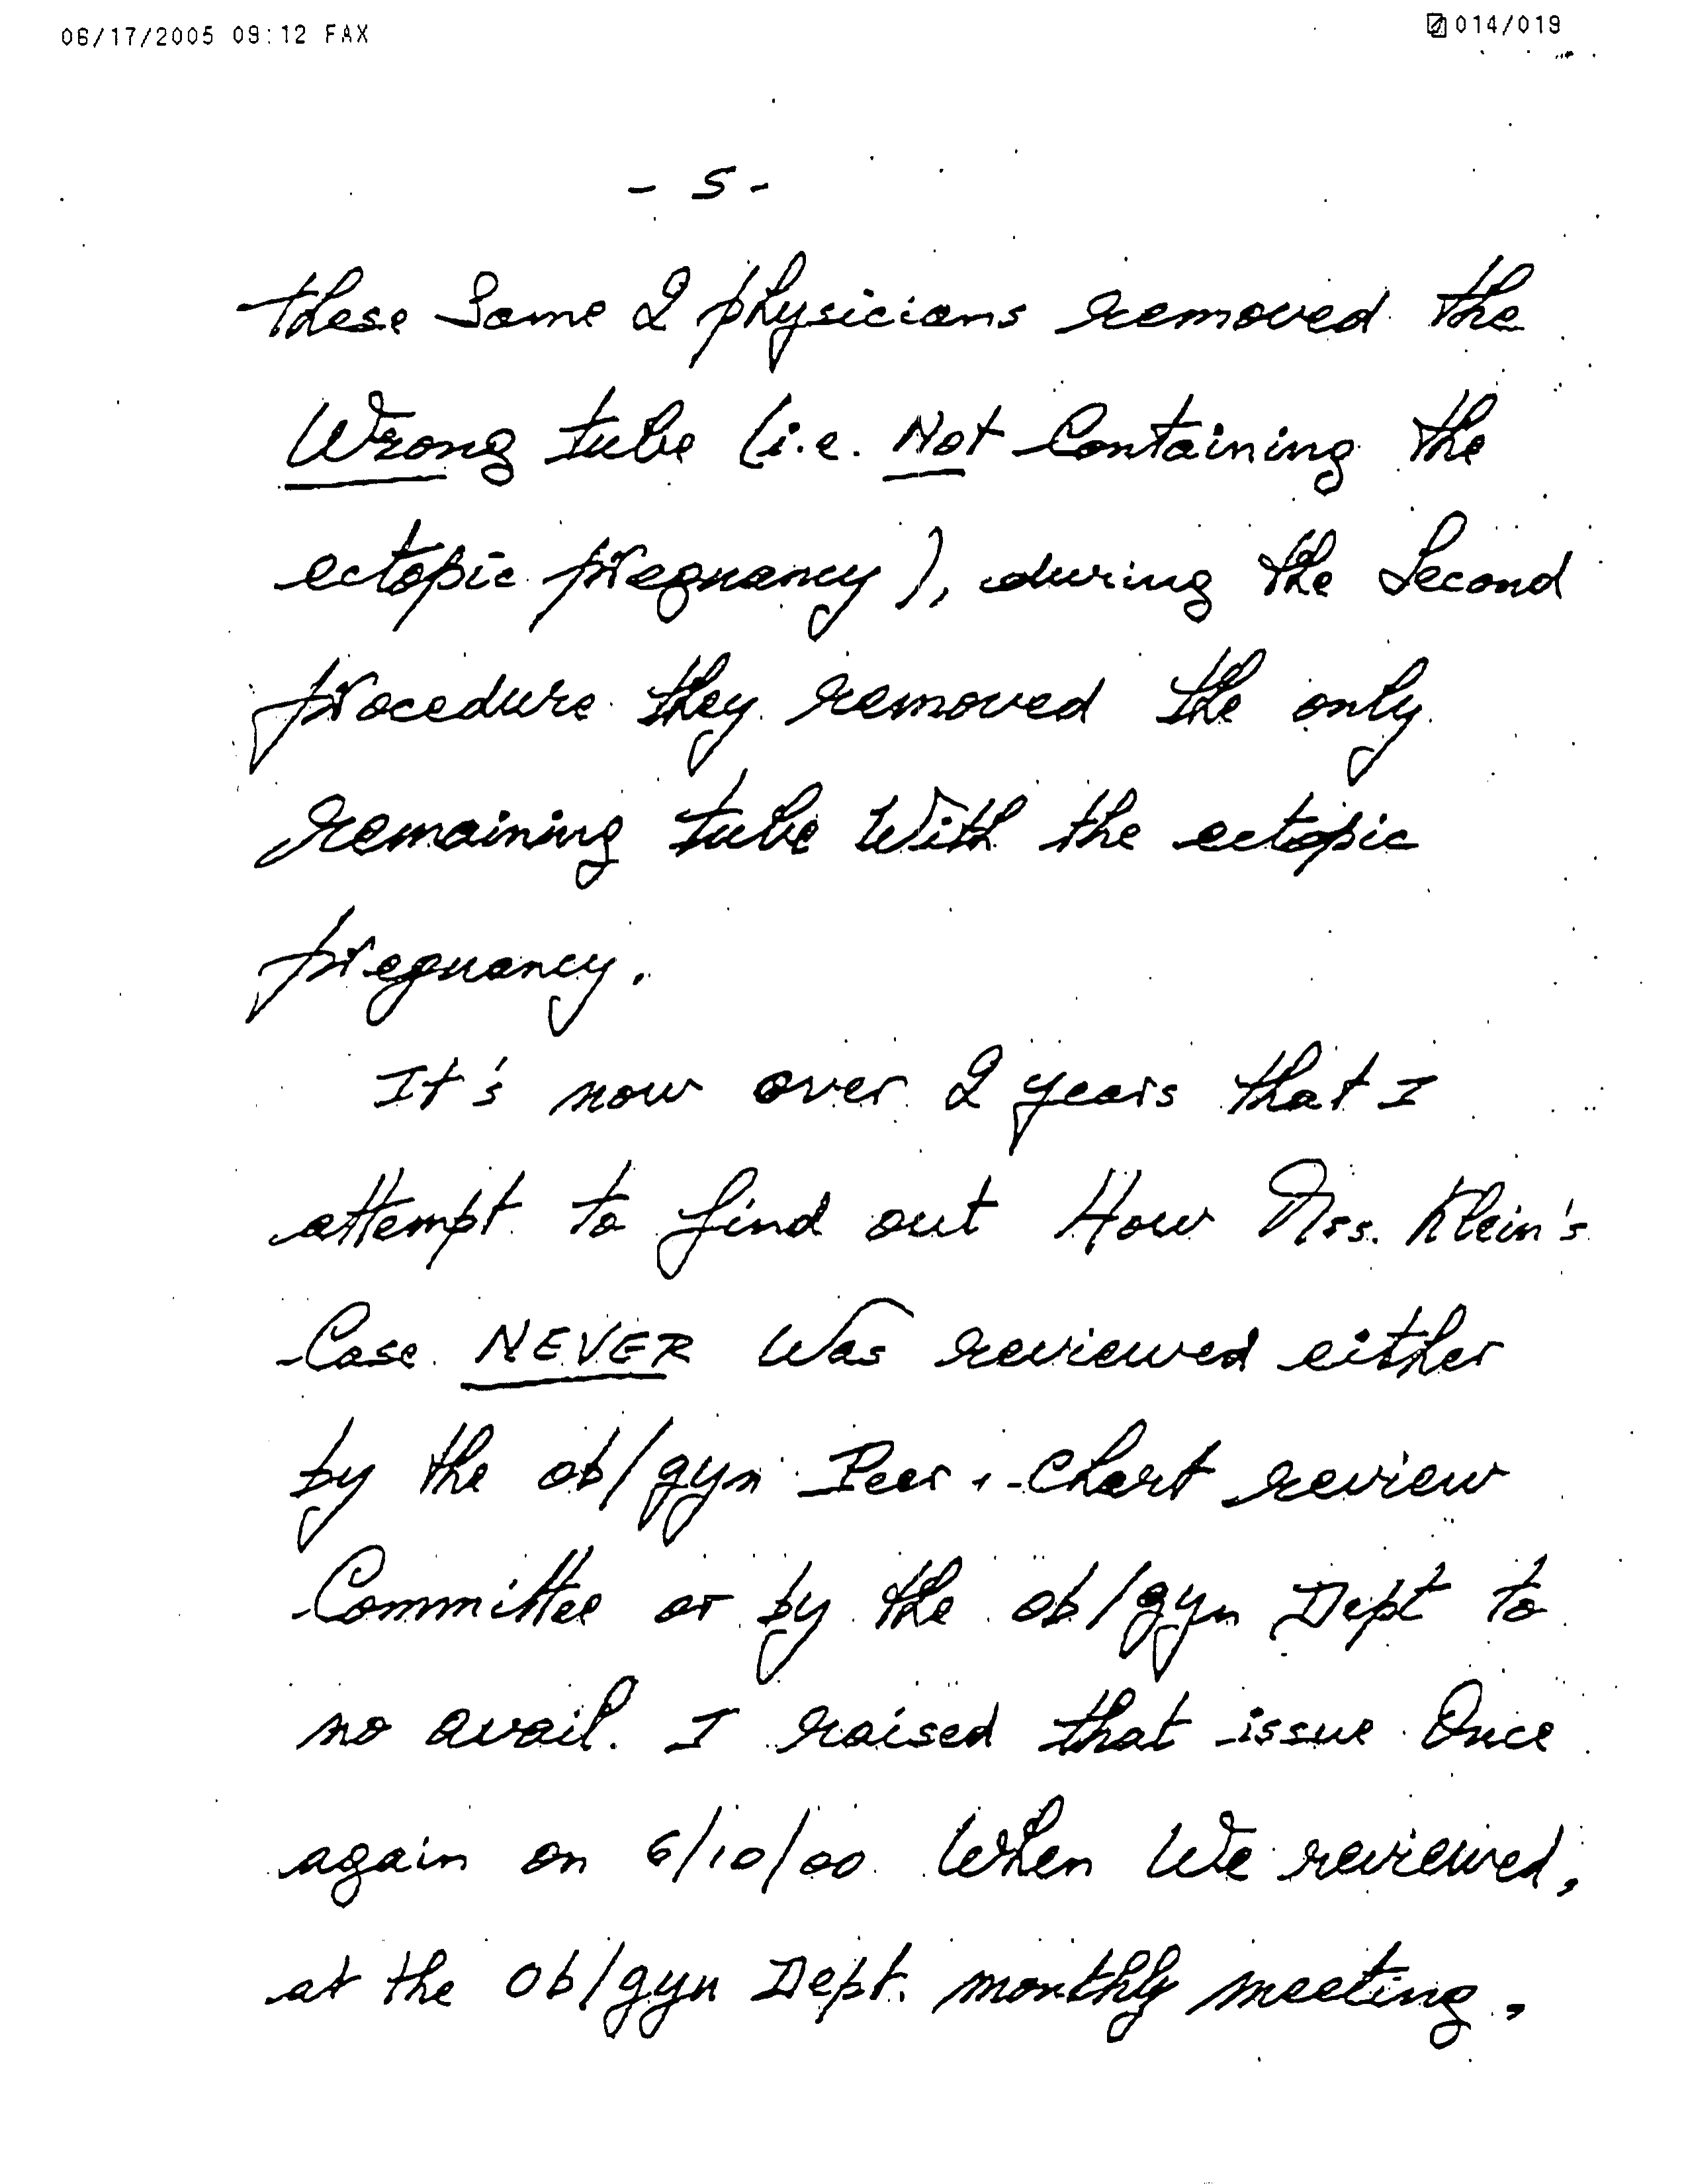 06/17/2005 09:12 FAX 014/019
- 5 -
these Same 2 physicians removed the
Wrong tube (i.e. Not Containing the
ectopic pregnancy), during the Second
procedure they removed the only
remaining tube With the ectopic
pregnancy.
It's now over 2 years that I
attempt to find out How Mrs. Klein's
Case NEVER Was reviewed either
by the ob/gyn Peer + Chart review
Committee or by the ob/gyn Dept to
no avail. I raised that issue Once
again on 6/10/00 When We reviewed,
at the Ob/gyn Dept. monthly meeting,